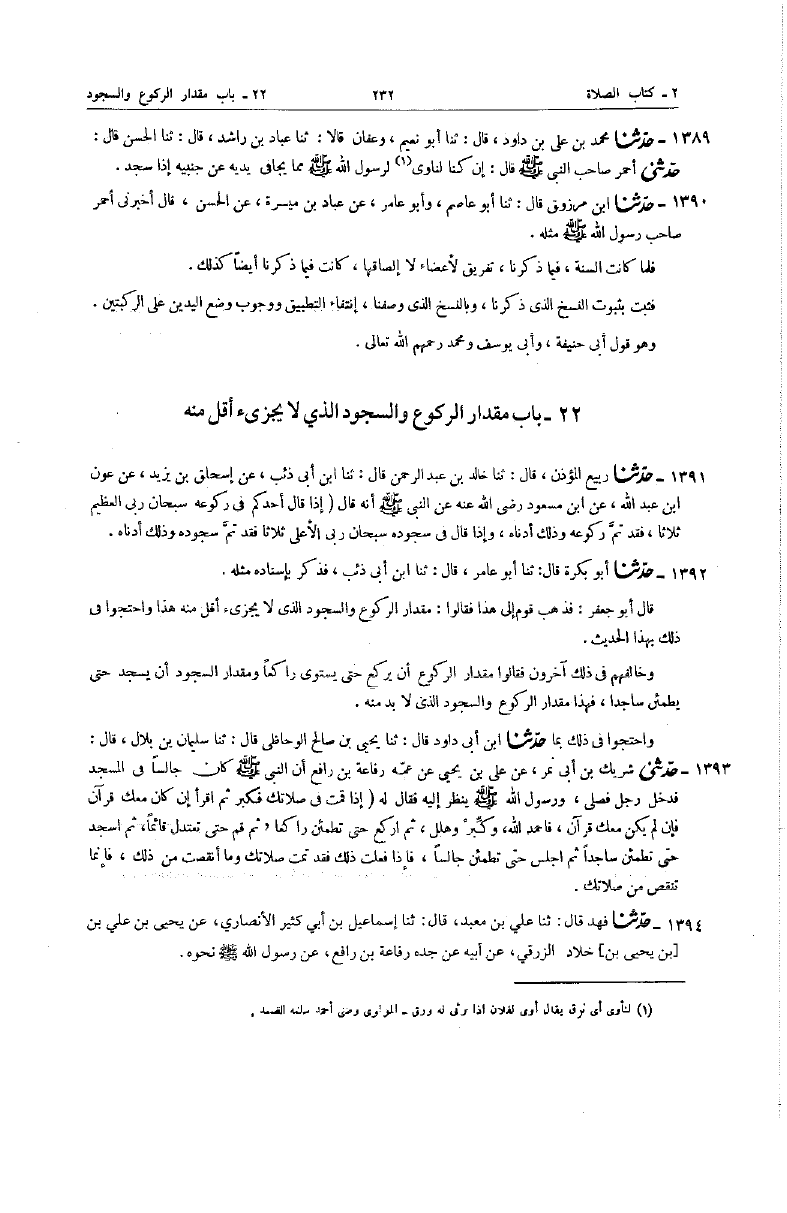 ٢ ـ كتاب الصلاة ٢٣٢ ٢٢ ـ باب مقدار الركوع والسجود
١٣٨٩ ـ حدثنا محمد بن على بن داود ، قال : ثنا أبو نعيم ، وعفان قالا : ثنا عباد بن راشد ، قال : ثنا الحسن قال :
حدثني أحمر صاحب النبى ﷺ قال : إن كنا لناوى(١) لرسول الله ﷺ مما يجافى يديه عن جنبيه إذا سجد .
١٣٩٠ ـ حدثنا ابن مرزوق قال : ثنا أبو عاصم ، وأبو عامر ، عن عباد بن ميسرة ، عن الحسن ، قال أخبرنى أحمر
صاحب رسول الله ﷺ مثله .
فلما كانت السنة ، فيما ذكرنا ، تفريق لأعضاء لا إلصاقها ، كانت فيما ذكرنا أيضاً كذلك .
فثبت بثبوت الفسخ الذى ذكرنا ، وبالنسخ الذى وصفنا ، إنتفاء التطبيق ووجوب وضع اليدين على الركبتين .
وهو قول أبى حنيفة ، وأبى يوسف ومحمد رحمهم الله تعالى .
٢٢ ـ باب مقدار الركوع والسجود الذي لا يجزىء أقل منه
١٣٩١ ـ حدثنا ربيع المؤذن ، قال : ثنا خالد بن عبد الرحمن قال : ثنا ابن أبى ذئب ، عن إسحاق بن يزيد ، عن عون
ابن عبد الله ، عن ابن مسعود رضى الله عنه عن النبى ﷺ أنه قال ( إذا قال أحدكم فى ركوعه سبحان ربى العظيم
ثلاثا ، فقد تمَّ ركوعه وذلك أدناه ، وإذا قال فى سجوده سبحان ربى الأعلى ثلاثا فقد تمَّ سجوده وذلك أدناه .
١٣٩٢ ـ حدثنا أبو بكرة قال: ثنا أبو عامر ، قال : ثنا ابن أبى ذئب ، فذكر بإسناده مثله .
قال أبو جعفر : فذهب قوم إلى هذا فقالوا : مقدار الركوع والسجود الذى لا يجزىء أقل منه هذا واحتجوا فى
ذلك بهذا الحديث .
وخالفهم فى ذلك آخرون فقالوا مقدار الركوع أن يركع حتى يستوى راكعاً ومقدار السجود أن يسجد حتى
يطمئن ساجدا ، فهذا مقدار الركوع والسجود الذى لا بد منه .
واحتجوا فى ذلك بما حدثنا ابن أبى داود قال : ثنا يحيى بن صالح الوحاظى قال : ثنا سليمان بن بلال ، قال :
١٣٩٣ ـ حدثني شريك بن أبى نمر ، عن على بن يحيى عن عمّه رفاعة بن رافع أن النبى ﷺ كان جالساً فى المسجد
فدخل رجل فصلى ، ورسول الله ﷺ ينظر إليه فقال له ( إذا قمت فى صلاتك فكبر ثم اقرأ إن كان معك قرآن
فإن لم يكن معك قرآن ، فاحمد الله، وكبّرْ وهلل ، ثم اركع حتى تطمئن راكعا ، ثم قم حتى تعتدل قائماً، ثم اسجد
حتى تطمئن ساجداً ثم اجلس حتى تطمئن جالساً ، فإذا فعلت ذلك فقد تمت صلاتك وما أنقصت من ذلك ، فإنما
تنقص من صلاتك .
١٣٩٤ ـ حدثنا فهد قال: ثنا علي بن معبد، قال: ثنا إسماعيل بن أبي كثير الأنصاري، عن يحيى بن علي بن
[بن يحيى بن] خلاد الزرقي، عن أبيه عن جده رفاعة بن رافع، عن رسول الله ﷺ نحوه.
(١) لنأوى أى نرق يقال أوى لفلان اذا رثى له ورق ـ المولوى وصى أحمد سلمه الصمد .